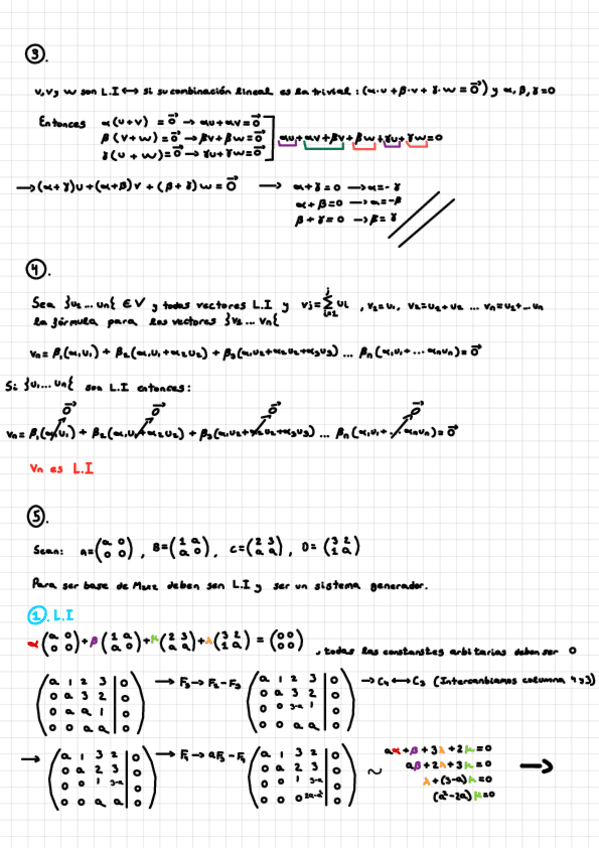 ③.
v, v y w son L.I ⟷ si su combinación lineal es la trivial : (α·u + β·v + γ·w = 0⃗) y α, β, γ = 0
Entonces α(u+v) = 0⃗ → αu+αv = 0⃗
β(v+w) = 0⃗ → βv+βw = 0⃗
γ(u+w) = 0⃗ → γu+γw = 0⃗
αu+αv+βv+βw+γu+γw=0
→ (α+γ)u+(α+β)v+(β+γ)w = 0⃗ → α+γ=0 → α=-γ
α+β=0 → α=-β
β+γ=0 → β=γ
④.
Sea }u₁ ... un{ ∈ V y todos vectores L.I y vj = Σ ui , v₁=u₁, v₂=u₂+u₂ ... vn=u₁+...un
j
i=1
la fórmula para los vectores }v₁ ... vn{
vn = β₁(α₁u₁) + β₂(α₁u₁+α₂u₂) + β₃(α₁u₂+α₂u₂+α₃u₃) ... βn(α₁u₁+...αnun) = 0⃗
Si }u₁... un{ son L.I entonces:
0⃗ 0⃗ 0⃗ 0⃗
vn = β₁(α₁u₁) + β₂(α₁u₁+α₂u₂) + β₃(α₁u₂+α₂u₂+α₃u₃) ... βn(α₁u₁+...αnun) = 0⃗
Vn es L.I
⑤.
Sean: A=(a 0 / 0 0) , B=(1 a / a 0) , C=(2 3 / a a) , D=(3 2 / 1 a)
Para ser base de M₂ₓ₂ deben sen L.I y ser un sistema generador.
①. L.I
α(a 0 / 0 0)+β(1 a / a 0)+μ(2 3 / a a)+λ(3 2 / 1 a) = (0 0 / 0 0) , todas las constantes arbitarias deben ser 0
(a 1 2 3 | 0 / 0 a 3 2 | 0 / 0 a a 1 | 0 / 0 0 a a | 0) → F₃→F₂-F₃ (a 1 2 3 | 0 / 0 a 3 2 | 0 / 0 0 3-a 1 | 0 / 0 0 a a | 0) → C₄⟷C₃ (Intercambiamos columna 4 y 3)
→ (a 1 3 2 | 0 / 0 a 2 3 | 0 / 0 0 1 3-a | 0 / 0 0 a a | 0) → F₄→aF₃-F₄ (a 1 3 2 | 0 / 0 a 2 3 | 0 / 0 0 1 3-a | 0 / 0 0 0 2a-a² | 0) ~ aα+β+3λ+2μ=0
aβ+2λ+3μ=0
λ+(3-a)μ=0
(a²-2a)μ=0
→